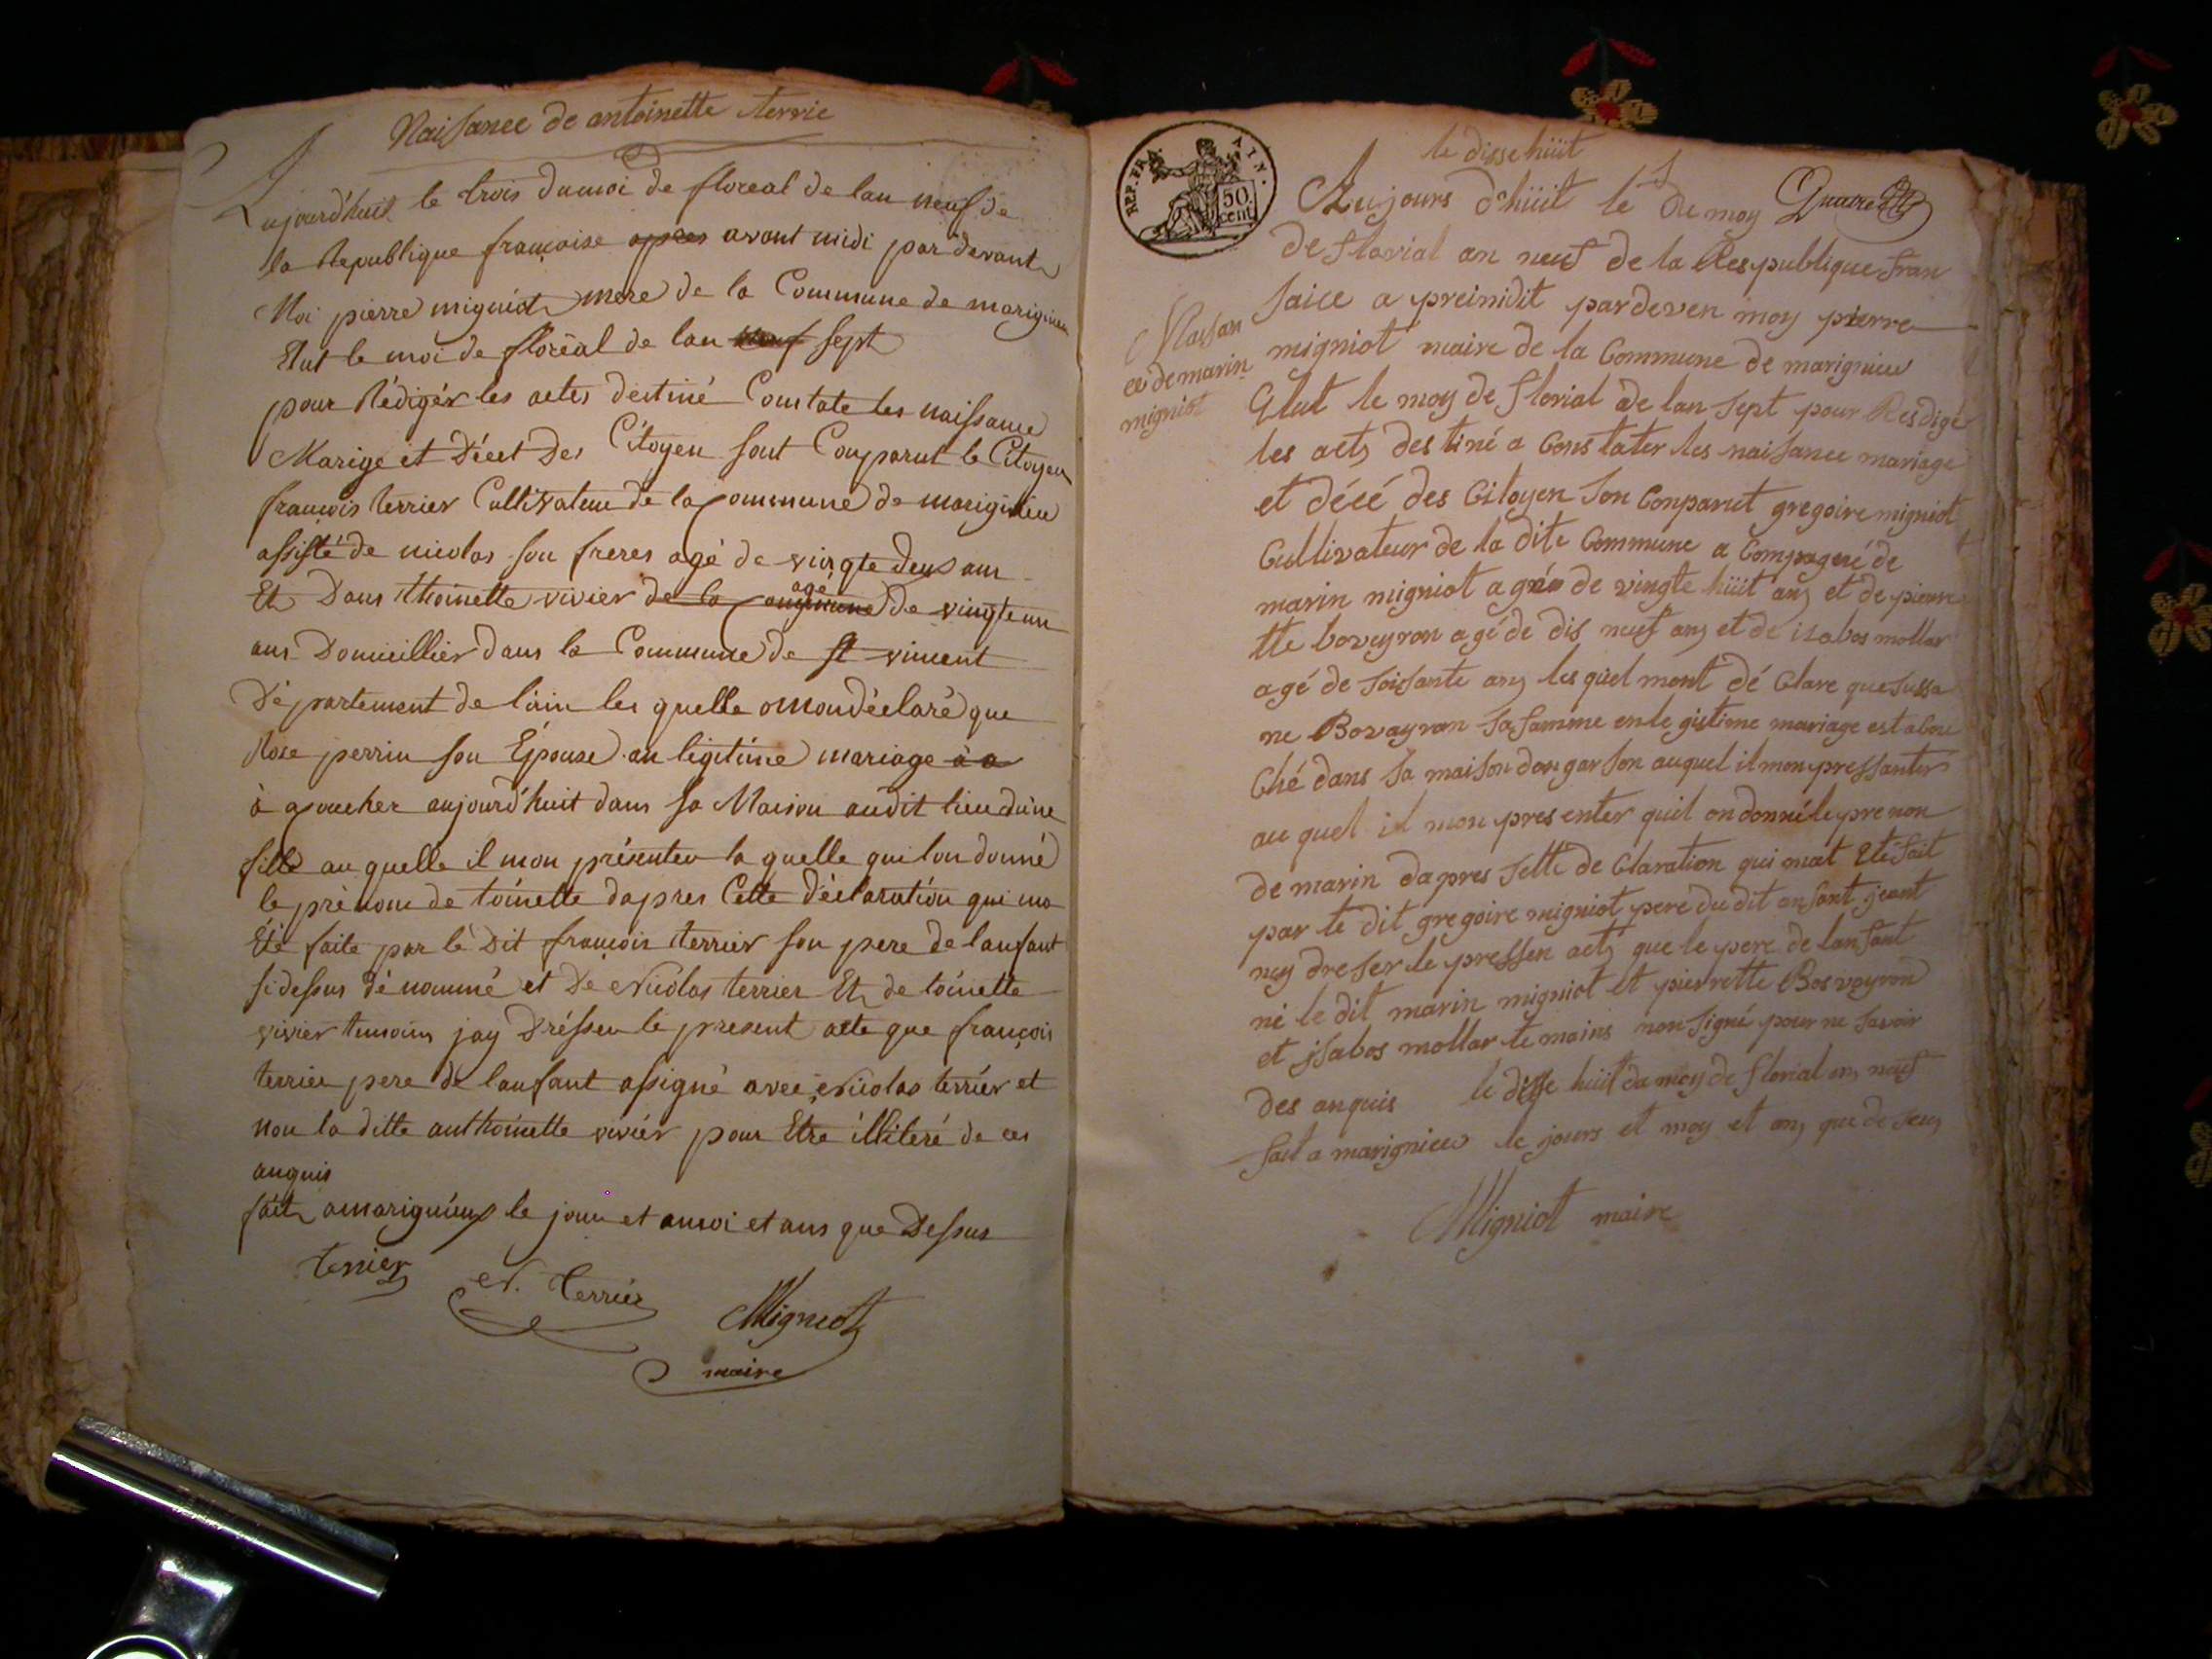 Naisance de antoinette terrie
Aujourd'huit le trois dumoi de floreal de lan neuf de
la Republique francoise apres avant midi par devant
Moi pierre migniot mere de la Commune de marignieu
Elut le moi de floréal de lan neuf sept
pour Rédigér les actes destiné Constate les naissance
Marige et Décet Des Citoyen sont Comparut le Citoyen
francois terrier Cultivateur de la Commune de marignieu
assisté de nicolas son freres agé de vingte deux ans
Et Dans thoinette vivier de la Commune agé de vingte un
ans Domicillier dans la Commune de st vincent
Département de l'ain les quelle omon déclaré que
Rose perrin son Épouse an legitime mariage à a
à acoucher aujourd'huit dans sa Maison audit lieu dune
fille au quelle il mon présenter la quelle qui lon donné
le prènom de toinette dapres Cette déclaration qui ma
Été faite par lè Dit francois terrier son pere de lanfant
sidessus dénommé et De Nicolas terrier Et de toinette
vivier temoins jay Drésser le present acte que françois
terrier pere de lanfant assigné avec Nicolas terrier et
non la ditte anthoinette vivier pour Etre illiteré de ces
anquis
fait a marignieux le jour et a moi et ans que Dessus
terrier
N. terrier
Migniot
maire
REP. FRA. AIN.
50 cent.
le disse hüit
Aujours d'hüit lé du moy
de florial an neuf de la Respublique fran
saice a preimidit pardeven moy pierre
migniot maire de la Commune de marignieu
Elut le moy de florial de lan sept pour Resdigé
les acts destiné a Constater les naisance mariage
et décé des Citoyen son Conparut gregoire migniot
Cultivateur de la dite Commune a Compagné de
marin migniot agé de vingte hüit ans et de pierre
tte boveyron agé de dis neuf ans et de izabos mollar
agé de soisante ans les quel mont dé Clare que sussa
ne Bovayron sa famme en le gistime mariage est abou
Ché dans sa maison don garson auquel il mon pressanter
au quel il mon presenter quil on donné le prenon
de marin dapres sette de Claration qui mat Eté fait
par le dit gregoire migniot pere du dit anfant jeant
nay dreser le pressen acts que le pere de lanfant
ni le dit marin migniot et pierrette Bosvayron
et jsabos mollar temoins non signé pour ne savoir
des anquis le disse hüit du moy de florial an neuf
fait a marignieu le jours et moy et ans que de seus
Migniot maire
Naisan
ce de marin
migniot